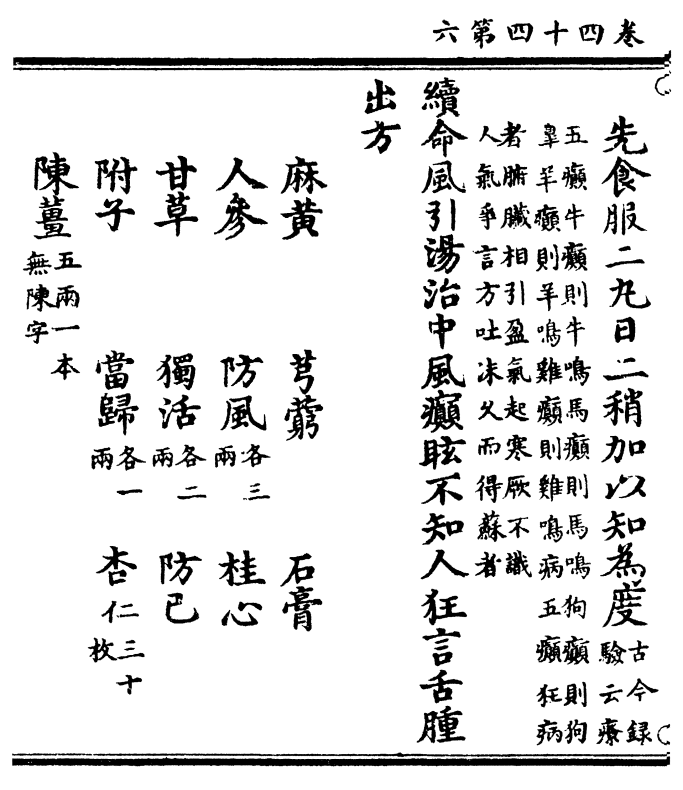 卷四十四第六
先食服二丸日二稍加以知為度古今録
驗云療
五癲牛癲則牛鳴馬癲則馬鳴狗癲則狗
皐羊癲則羊鳴雞癲則雞鳴病五癲狂病
者腑臟相引盈氣起寒厥不識
人氣爭言方吐沫久而得蘇者
續命風引湯治中風癲眩不知人狂言舌腫
出方
麻黃 芎藭 石膏
人參 防風各三兩 桂心
甘草 獨活各二兩 防已
附子 當歸各一兩 杏仁二三十枚
陳薑五兩一本
無陳字